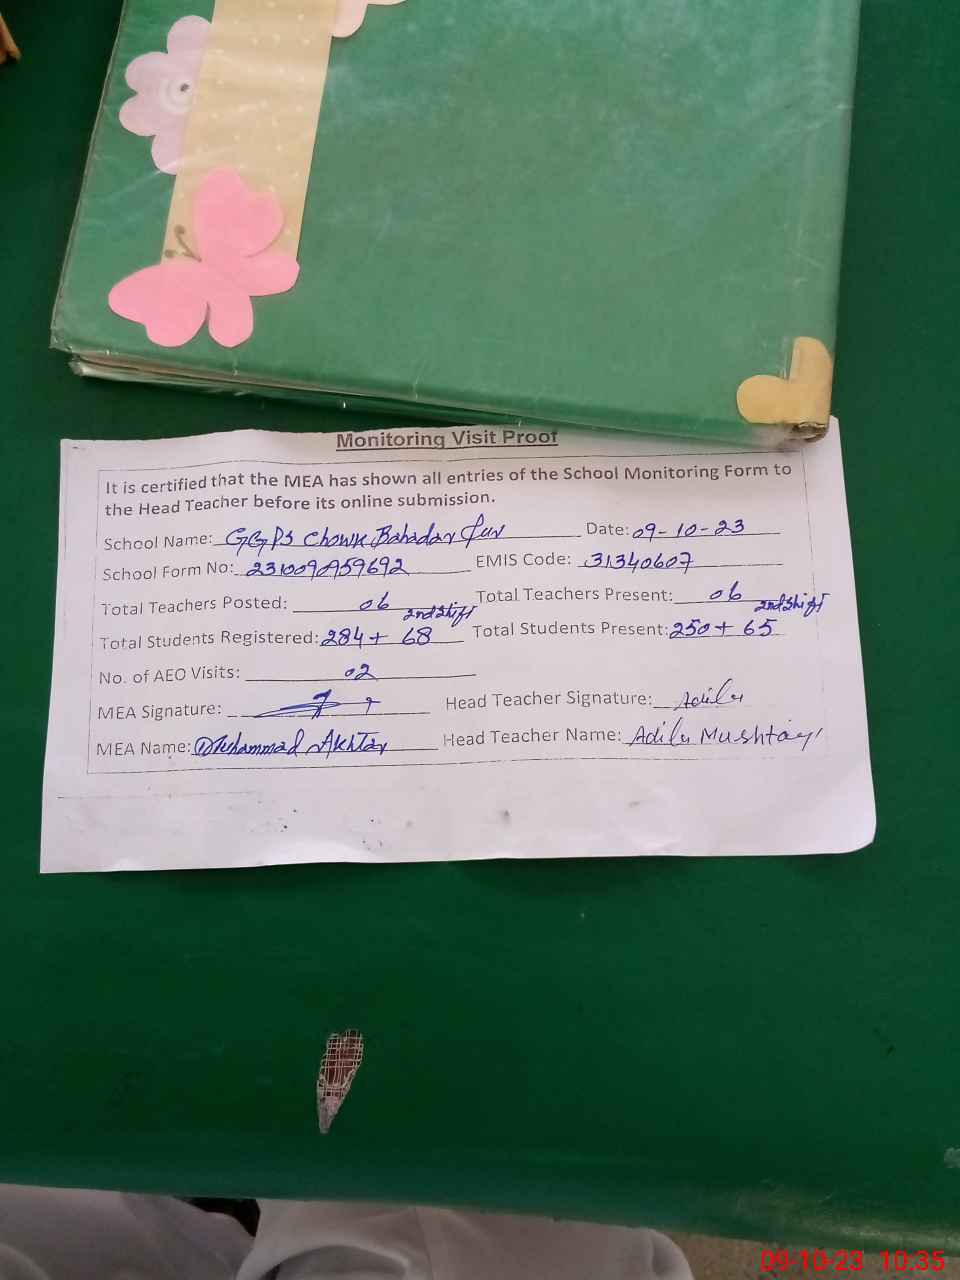 Monitoring Visit Proof
It is certified that the MEA has shown all entries of the School Monitoring Form to
the Head Teacher before its online submission.
School Name: GGPS Chowk Bahadar Pur Date: 09-10-23
School Form No: 231009959692 EMIS Code: 31340607
Total Teachers Posted: 06 Total Teachers Present: 06
2nd Shift 2nd Shift
Total Students Registered: 284 + 68 Total Students Present: 250 + 65
No. of AEO Visits: 02
MEA Signature: Head Teacher Signature: Adila
MEA Name: Muhammad Akhtar Head Teacher Name: Adila Mushtaq
09-10-23 10:35